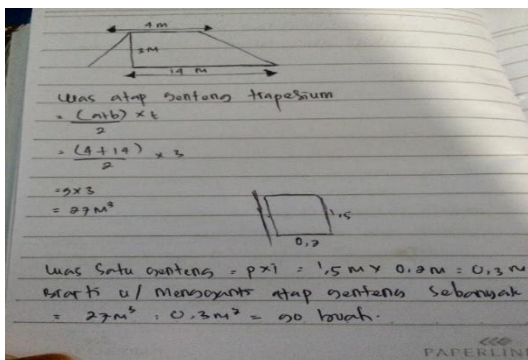 4 m
3 M
14 M
Luas atap genteng trapesium
= (a+b) x t
2
= (4+14) x 3
2
= 9 x 3
= 27 M²
1,5
0,2
Luas satu genteng = p x l = 1,5 m x 0,2 m = 0,3 m
Brarti u/ mengganti atap genteng sebanyak
= 27 m² : 0,3 m² = 90 buah.
PAPERLINE